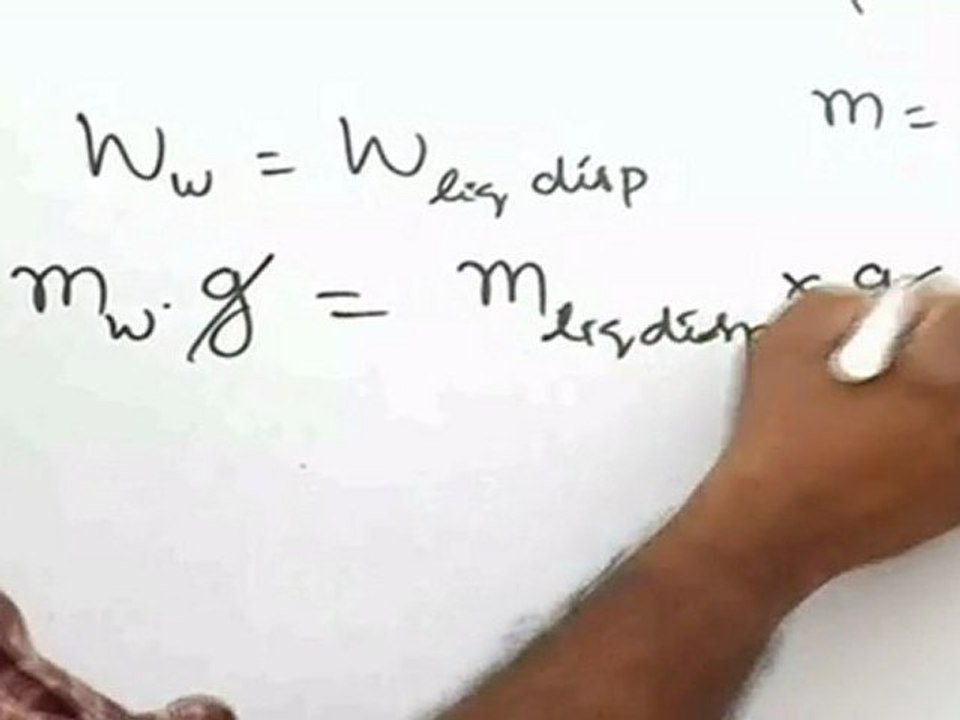 m =
W_w = W_liq disp
m_w . g = m_liq disp × g